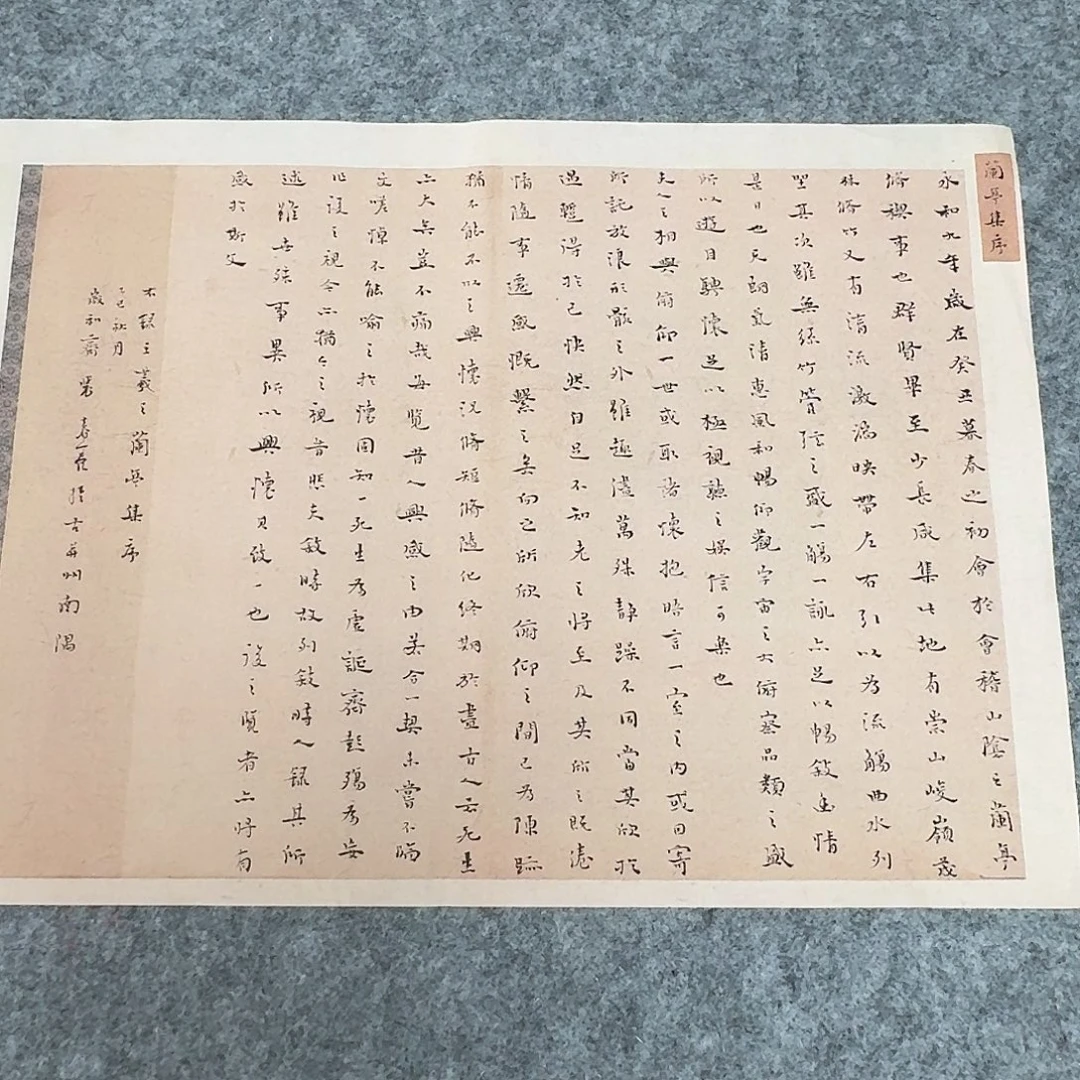 蘭亭集序
永和九年歲在癸丑暮春之初會於會稽山陰之蘭亭
脩禊事也群賢畢至少長咸集此地有崇山峻嶺茂
林脩竹又有清流激湍映帶左右引以為流觴曲水列
坐其次雖無絲竹管弦之盛一觴一詠亦足以暢敘幽情
是日也天朗氣清惠風和暢仰觀宇宙之大俯察品類之盛
所以遊目騁懷足以極視聽之娛信可樂也
夫人之相與俯仰一世或取諸懷抱晤言一室之內或因寄
所託放浪形骸之外雖趣萬殊靜躁不同當其欣於
遇蹔得於己快然自足不知老之將至及其所之既倦
情隨事遷感慨繫之矣向之所欣俯仰之間已為陳跡
猶不能不以之興懷況脩短脩隨化終期於盡古人云死生
亦大矣豈不痛哉每覽昔人興感之由若合一契未嘗不臨
文嗟悼不能喻之於懷固知一死生為虛誕齊彭殤為妄
作後之視今亦猶今之視昔悲夫敘時故列敘時人錄其所
述雖世殊事異所以興懷其致一也後之覽者亦將有
感於斯文
右錄王羲之蘭亭集序
乙巳秋月
歲和齋於古蘇州南隅